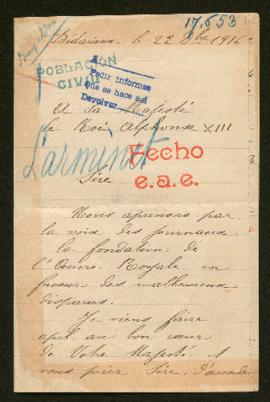 17,553
Bédarieux le 22 8bre 1916
POBLACIÓN
CIVIL
Pedir informes
que se hace así
Devolver
A Sa Majesté
le Roi Alphonse XIII
Hecho
e.a.e.
Sire
Nous aprenons par
la voix des journaux
la fondation de
l'Œuvre Royale en
faveur des malheureux
disparus.
Je viens faire
apel au bon cœur
de Votre Majesté et
vous prier, Sire, d'accorder